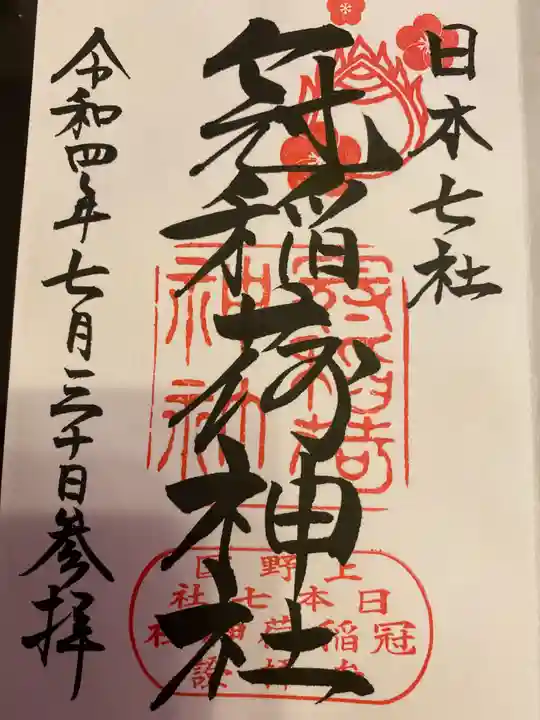 日本七社
冠稲荷神社
令和四年七月三十日参拝
冠稲荷神社
上野国
日本七社
冠稲荷神社
参拝證